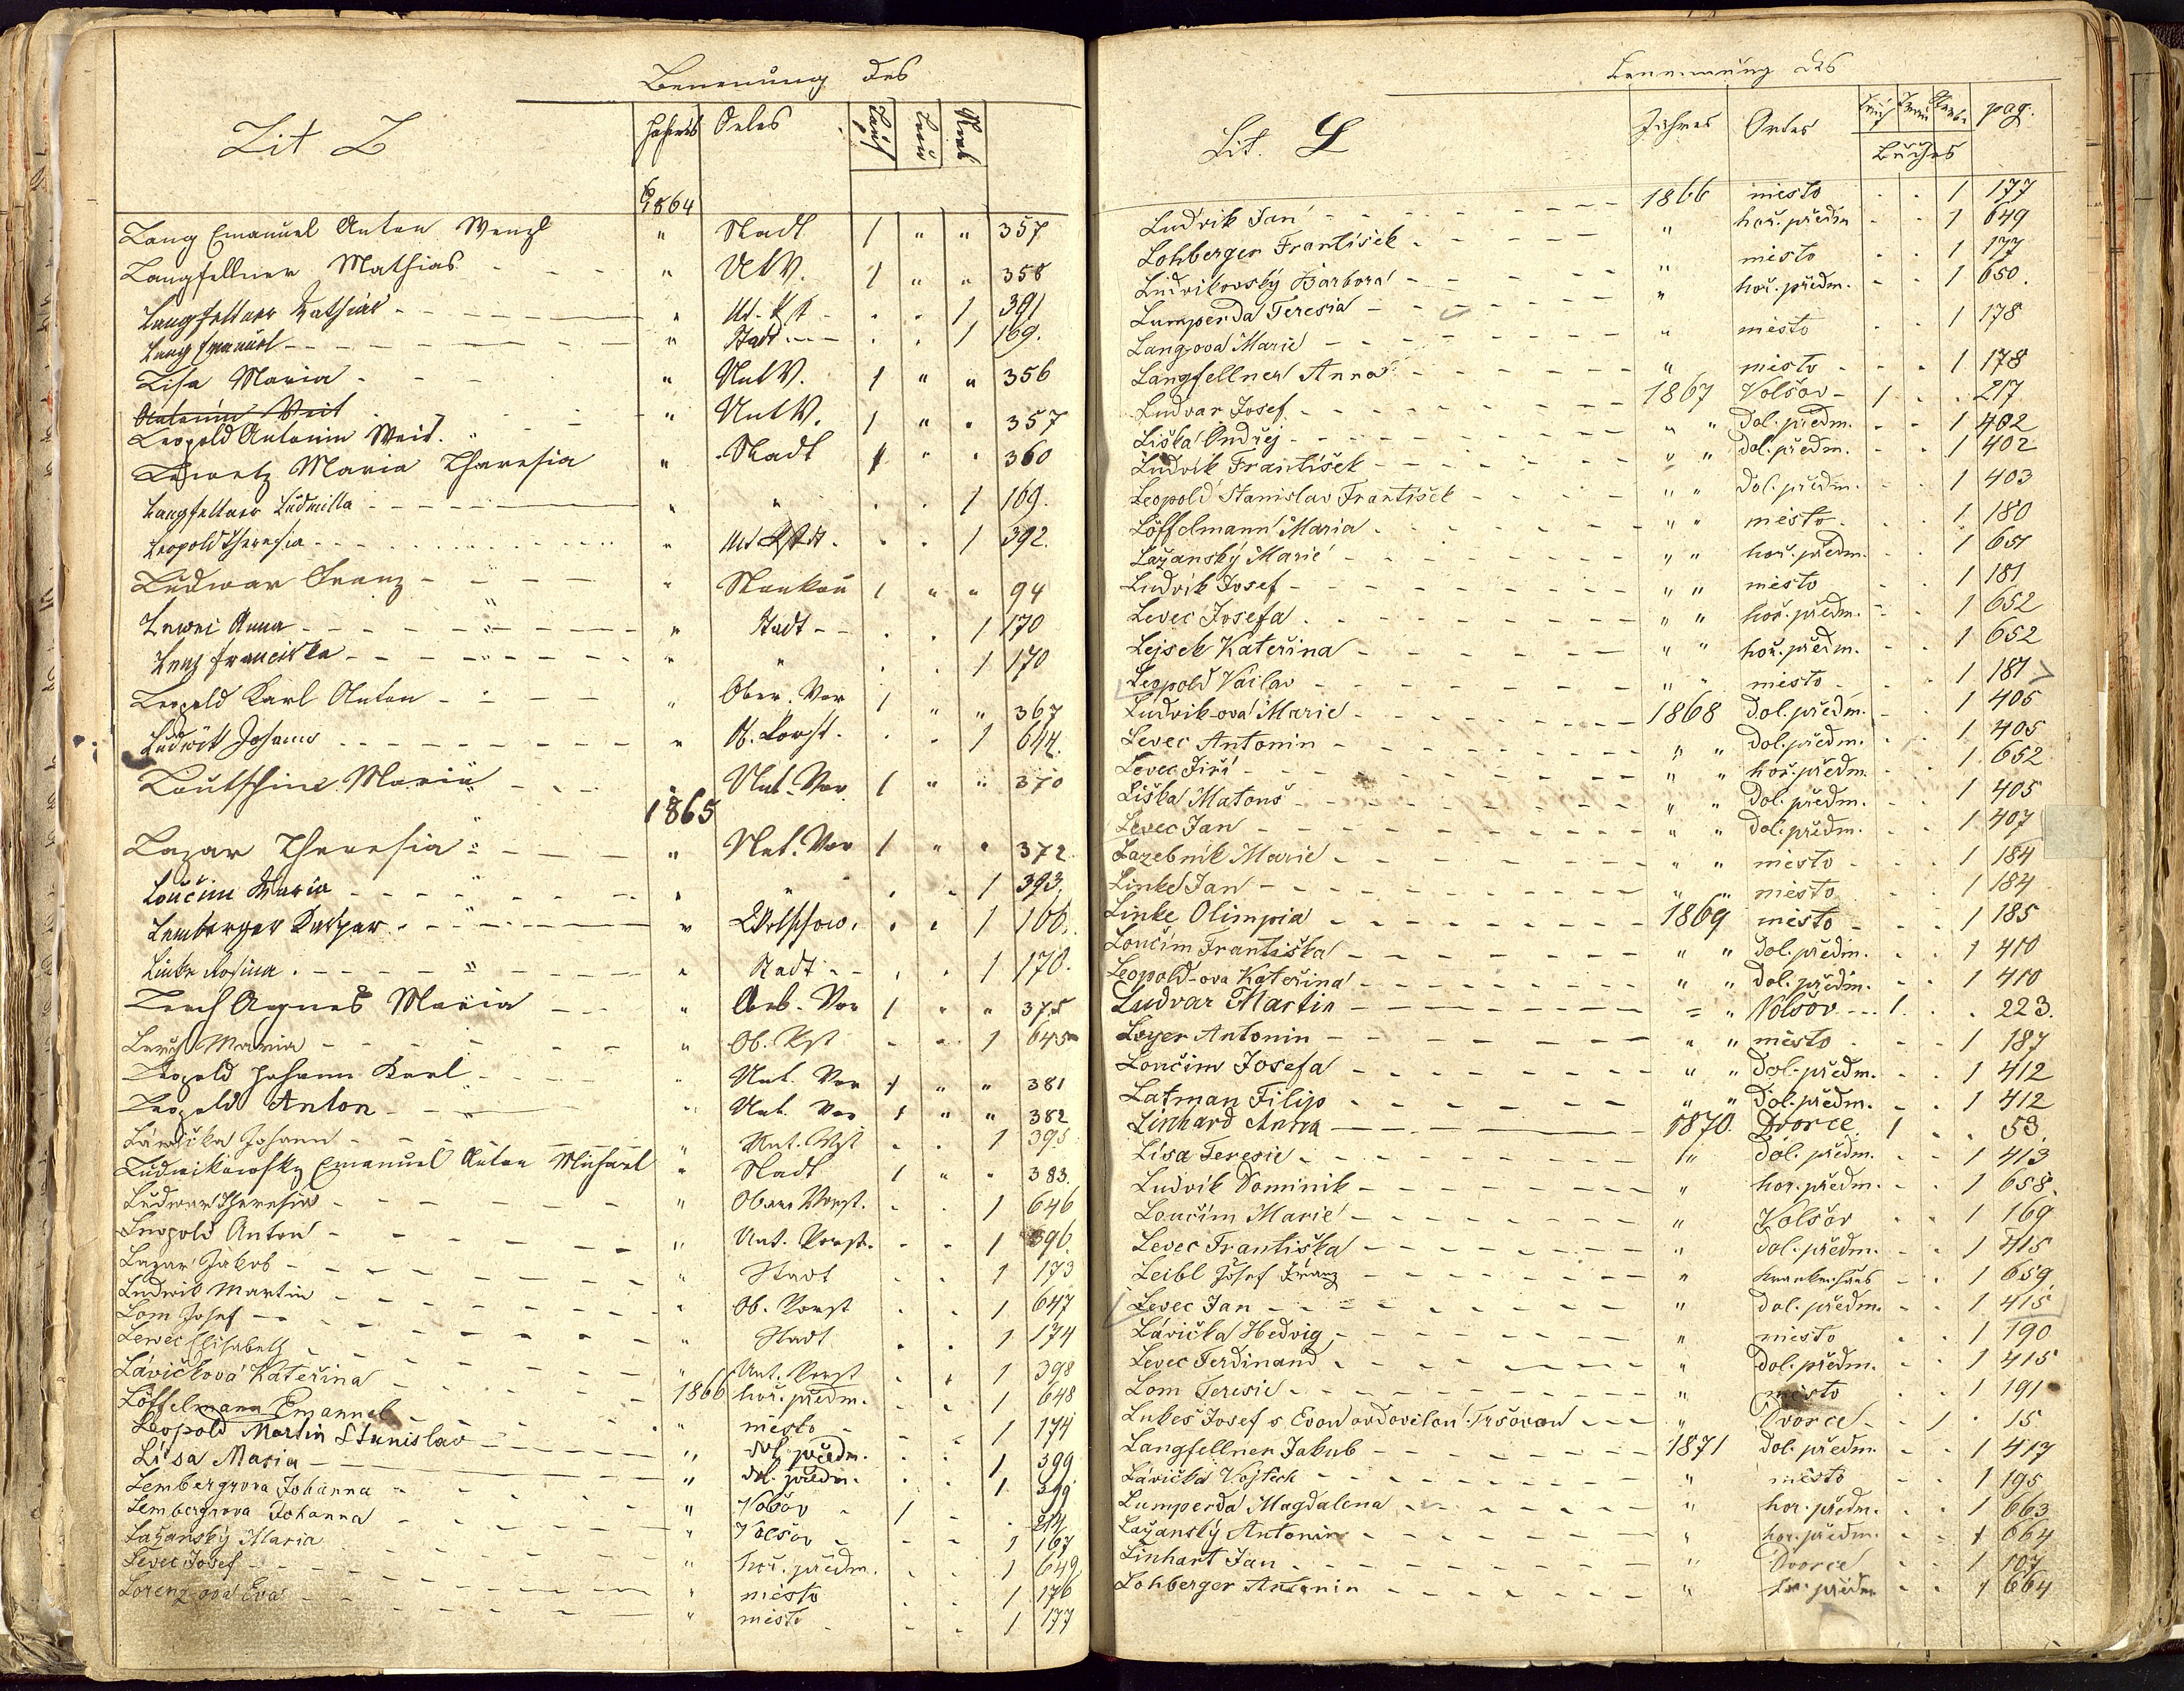 Benennung des
Lit L Jahres Ortes Tauf Trau Sterb
1864
Lang Emanuel Anton Wenzl " Stadt 1 " " 357
Langfellner Mathias " 1 " " 358
Langfellner Mathias " 1 391
Lang Emanuel " Stadt 1 169.
Lisa Maria " UntV. 1 " " 356
Leopold Antonin Veit. " UntV. 1 " " 357
Maria Theresia " Stadt 1 " " 360
Langfellner Ludmilla " " 1 169.
Leopold Theresia " 1 392.
Ludwar Franz " 1 " " 94
Lewei Anna " Stadt 1 170
Lenz Franciska " " 1 170
Leopold Karl Anton " Ober. Vor 1 " " 367
Ludwik Johann " O. Vorst. 1 644.
Loutschim Maria Unt. Vor 1 " " 370
1865
Lazar Theresia " Unt. Vor 1 " " 372
Loučim Maria " " 1 393.
Lemberger Kaspar " Wolschow. 1 166.
Linke Rosina " Stadt 1 170.
Lerch Agnes Maria " Ob. Vor 1 " " 375
Lerch Maria " Ob. Vst 1 645
Leopold Johann Karl " Unt. Vor 1 " " 381
Leopold Anton " Unt. Vor 1 " " 382
Lávička Johann " Unt. Vst 1 395
Ludwikowsky Emanuel Anton Michael " Stadt 1 " " 383.
Ludwar Theresia " Ober Vorst. 1 646
Leopold Anton " Unt. Vorst. 1 396.
Lazar Jakob " Stadt 1 173
Ludwik Martin " Ob. Vorst 1 647
Lom Josef " Stadt 1 174
Lewec Elisabeth " Unt. Vorst 1 398
Lávičková Kateřina 1866 hoř. předm. 1 648
Löffelmann Emanuel " město 1 174
Leopold Martin Stanislav " dol. předm. 1 399
Lísa Maria " dol. předm. 1 399
Lembergrova Johanna " Volšov 1 214
Lembergrova Johanna " Volšov 1 167
Lažanský Maria " hoř. předm. 1 649
Levec Josef " město 1 176
Lorenz ová Eva " město 1 177
Benennung des
Lit. L Jahres Ortes Tauf Trau Sterb. Buches pag.
Ludvik Jan 1866 město 1 177
Lohberger František " hoř. předm 1 649
Ludvikovský Barbora " město 1 177
Lumperda Teresia " hoř. předm. 1 650.
Langová Marie " město 1 178
Langfellner Anna " město 1 178
Ludvar Josef 1867 Volšov 1 217
Liška Ondřej " " dol. předm. 1 402
Ludvík František " " dol. předm. 1 402
Leopold Stanislav František " " dol. předm. 1 403
Löffelmann Maria " " město 1 180
Lažanský Marie " " hoř. předm. 1 651
Ludvík Josef " " město 1 181
Levec Josefa " " hoř. předm. 1 652
Lejsek Kateřina " " hoř. předm. 1 652
Leopold Václav " " město 1 181
Ludvik-ová Marie 1868 dol. předm. 1 405
Levec Antonin " " dol. předm. 1 405
Levec Jiří " " hoř. předm. 1 652
Liška Matouš " " dol. předm. 1 405
Levec Jan " " dol. předm. 1 407
Lazebnik Marie " " město 1 184
Linke Jan " " město 1 184
Linke Olimpia 1869 město 1 185
Loučim Františka " " dol. předm. 1 410
Leopold-ova Kateřina " " dol. předm. 1 410
Ludvar Martin = " Volšov 1 223.
Loyer Antonin " " město 1 187
Loučim Josefa " " dol. předm. 1 412
Latman Filip " " dol. předm. 1 412
Linhard Anna 1870 Dvorce 1 53.
Lísa Teresie " dol. předm. 1 413
Ludvík Dominik " hoř. předm. 1 658.
Loučím Marie " Volšov 1 169
Levec Františka " dol. předm. 1 415
Leibl Josef Franz " Krankenhaus 1 659
Levec Jan " dol. předm. 1 415
Lávička Hedvig " město 1 190
Levec Ferdinand " dol. předm. 1 415
Lom Teresie " město 1 191
Lukeš Josef s Evou Tršovou " Dvorce 1 15
Langfellner Jakub 1871 dol. předm. 1 417
Lávička Vojtěch " město 1 195
Lumperda Magdalena " hoř. předm. 1 663
Lažanský Antonin " hoř. předm. 1 664
Linhart Jan " Dvorce 1 107
Lohberger Antonin " hoř. předm 1 664